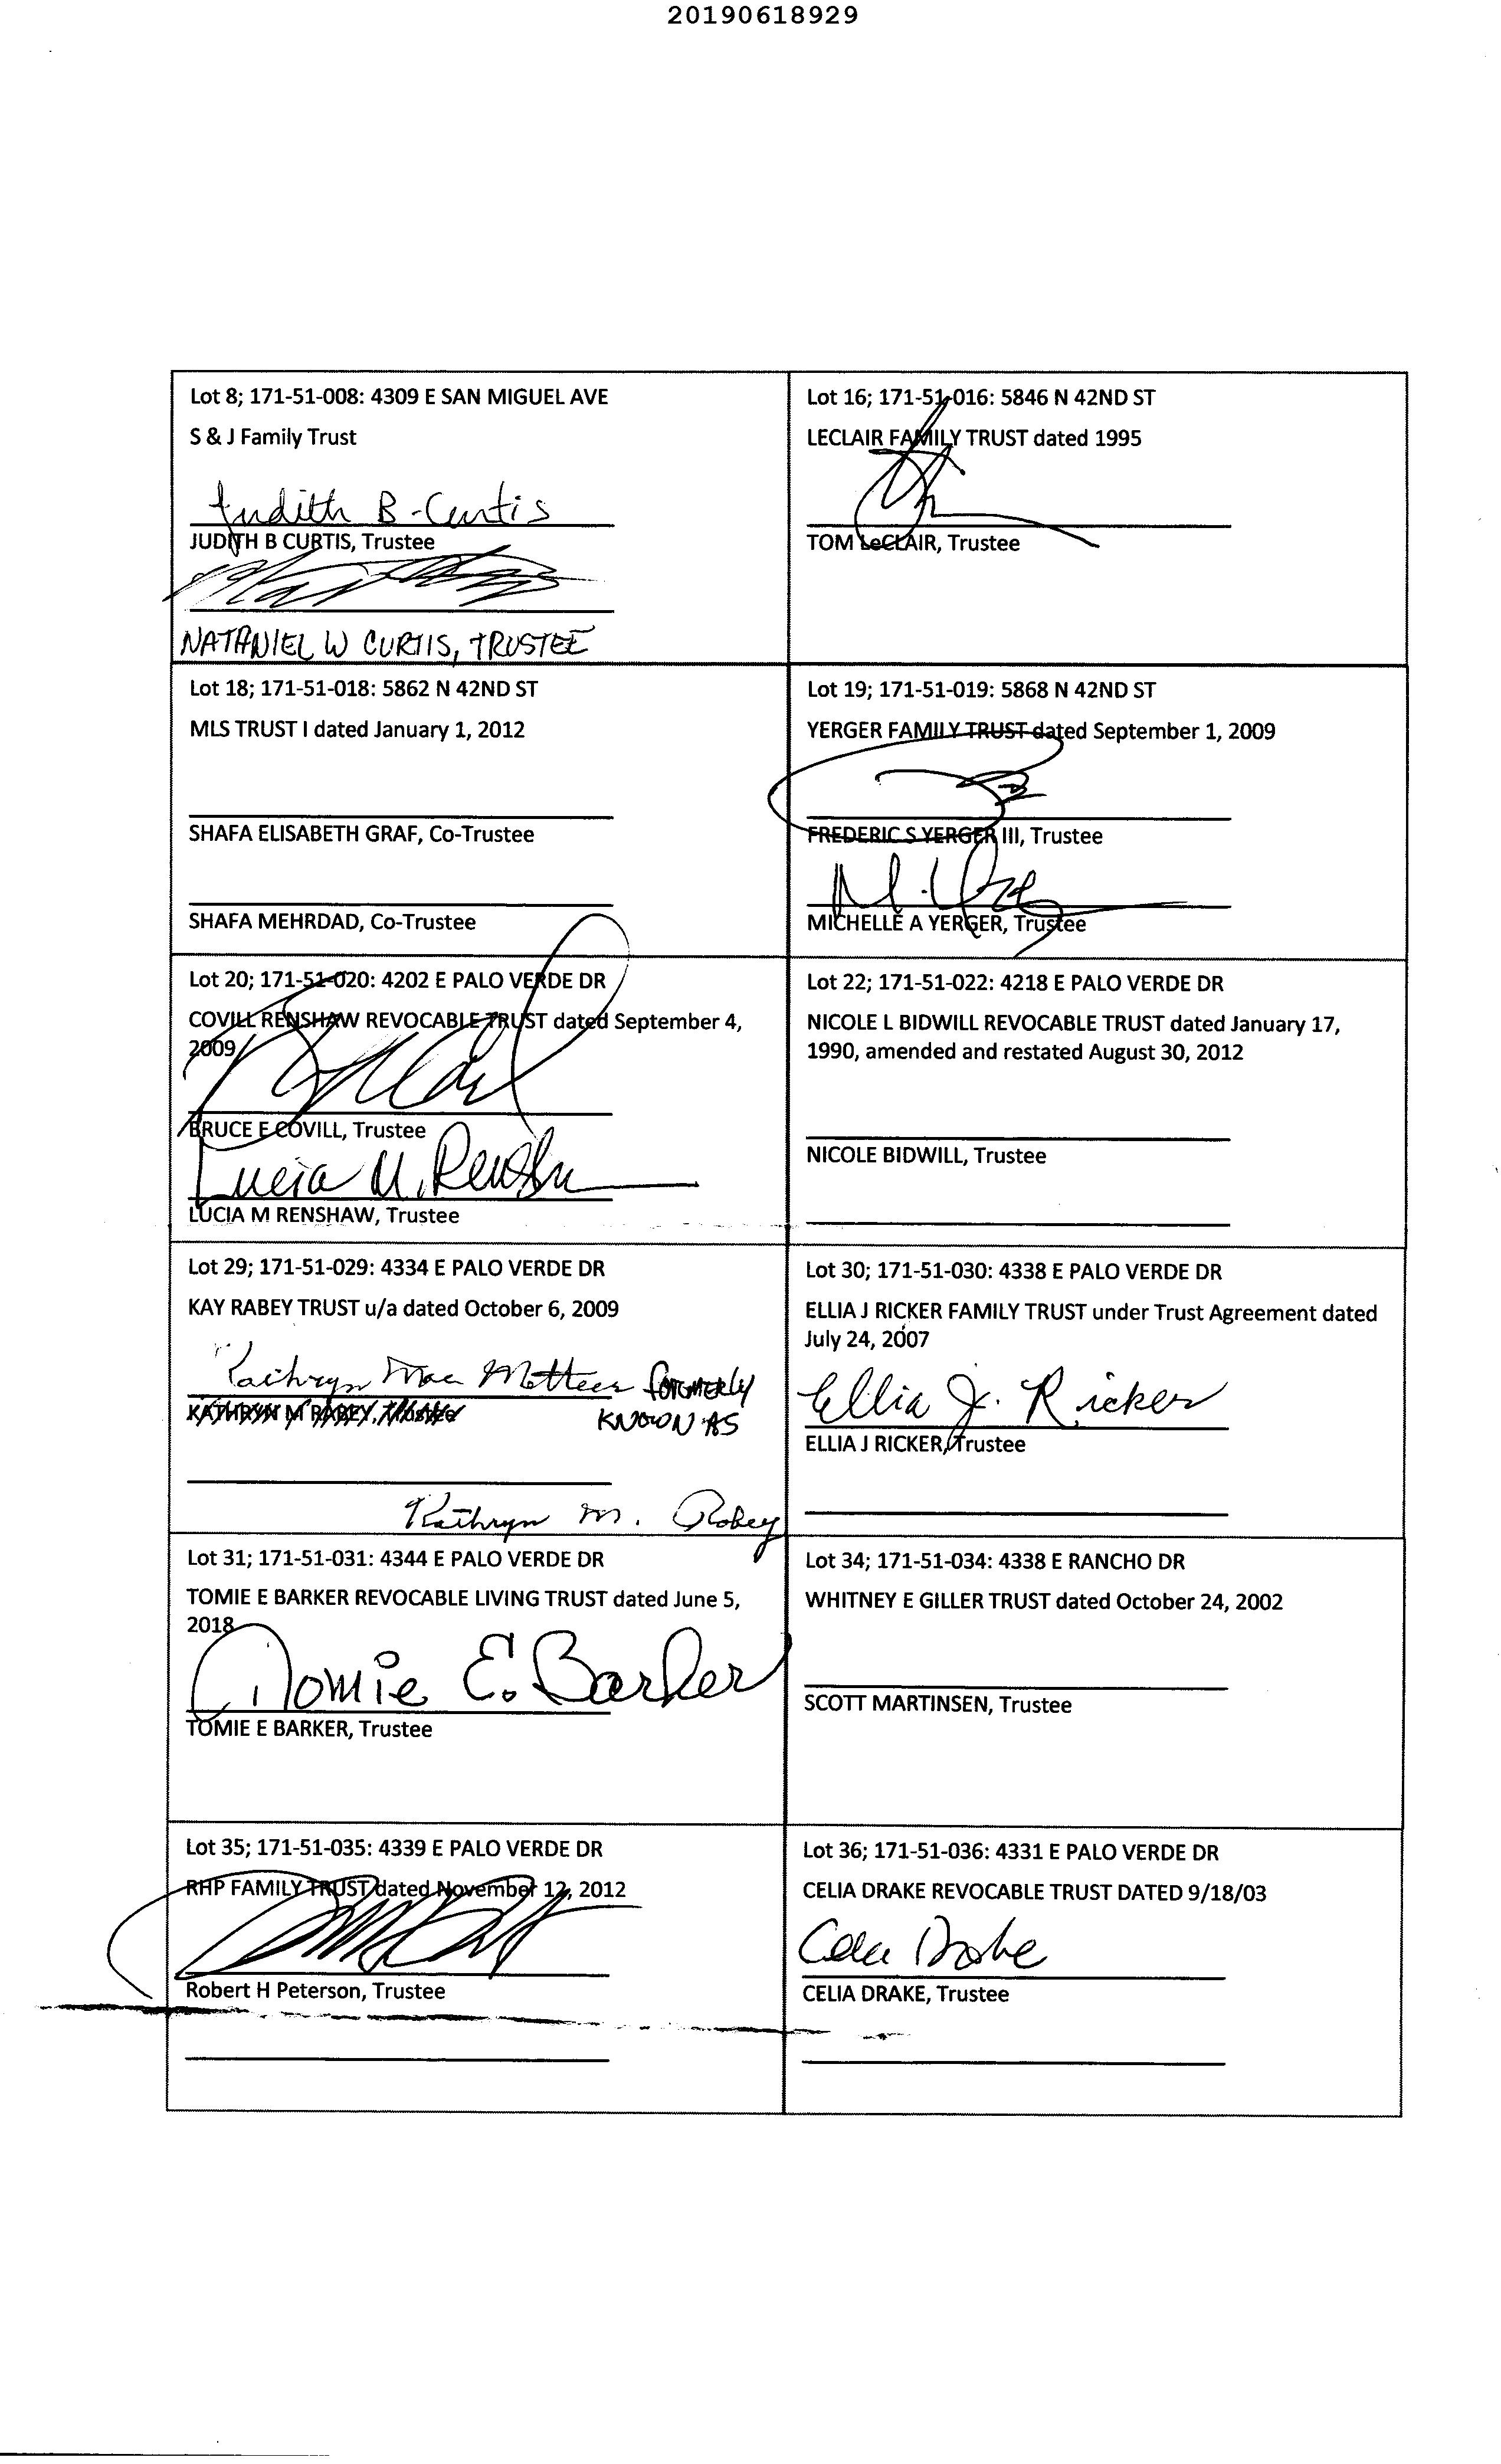 20190618929
Lot 8; 171-51-008: 4309 E SAN MIGUEL AVE
S & J Family Trust
Judith B-Curtis
JUDITH B CURTIS, Trustee
NATHANIEL W CURTIS, TRUSTEE
Lot 16; 171-51-016: 5846 N 42ND ST
LECLAIR FAMILY TRUST dated 1995
TOM LeCLAIR, Trustee
Lot 18; 171-51-018: 5862 N 42ND ST
MLS TRUST I dated January 1, 2012
SHAFA ELISABETH GRAF, Co-Trustee
SHAFA MEHRDAD, Co-Trustee
Lot 19; 171-51-019: 5868 N 42ND ST
YERGER FAMILY TRUST dated September 1, 2009
FREDERIC S YERGER III, Trustee
MICHELLE A YERGER, Trustee
Lot 20; 171-51-020: 4202 E PALO VERDE DR
COVILL RENSHAW REVOCABLE TRUST dated September 4,
2009
BRUCE E COVILL, Trustee
Lucia M. Renshw
LUCIA M RENSHAW, Trustee
Lot 22; 171-51-022: 4218 E PALO VERDE DR
NICOLE L BIDWILL REVOCABLE TRUST dated January 17,
1990, amended and restated August 30, 2012
NICOLE BIDWILL, Trustee
Lot 29; 171-51-029: 4334 E PALO VERDE DR
KAY RABEY TRUST u/a dated October 6, 2009
Kathryn Mac Matteer formerly
KATHRYN M RABEY, Trustee KNOWN AS
Kathryn M. Rabey
Lot 30; 171-51-030: 4338 E PALO VERDE DR
ELLIA J RICKER FAMILY TRUST under Trust Agreement dated
July 24, 2007
Ellia J. Ricker
ELLIA J RICKER, Trustee
Lot 31; 171-51-031: 4344 E PALO VERDE DR
TOMIE E BARKER REVOCABLE LIVING TRUST dated June 5,
2018
Tomie E. Barker
TOMIE E BARKER, Trustee
Lot 34; 171-51-034: 4338 E RANCHO DR
WHITNEY E GILLER TRUST dated October 24, 2002
SCOTT MARTINSEN, Trustee
Lot 35; 171-51-035: 4339 E PALO VERDE DR
RHP FAMILY TRUST dated November 12, 2012
Robert H Peterson, Trustee
Lot 36; 171-51-036: 4331 E PALO VERDE DR
CELIA DRAKE REVOCABLE TRUST DATED 9/18/03
Celia Drake
CELIA DRAKE, Trustee